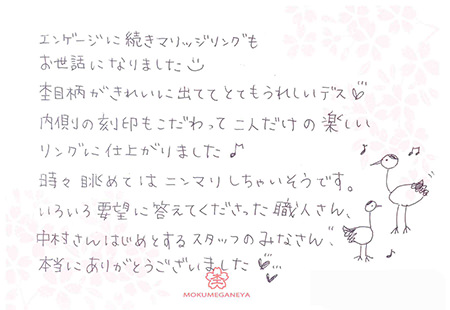 エンゲージに続きマリッジリングも
お世話になりました
杢目柄がきれいに出ててとてもうれしいデス
内側の刻印もこだわって二人だけの楽しい
リングに仕上がりました♪
時々眺めてはニンマリしちゃいそうです。
いろいろ要望に答えてくださった職人さん、
中村さんはじめとするスタッフのみなさん、
本当にありがとうございました
MOKUMEGANEYA